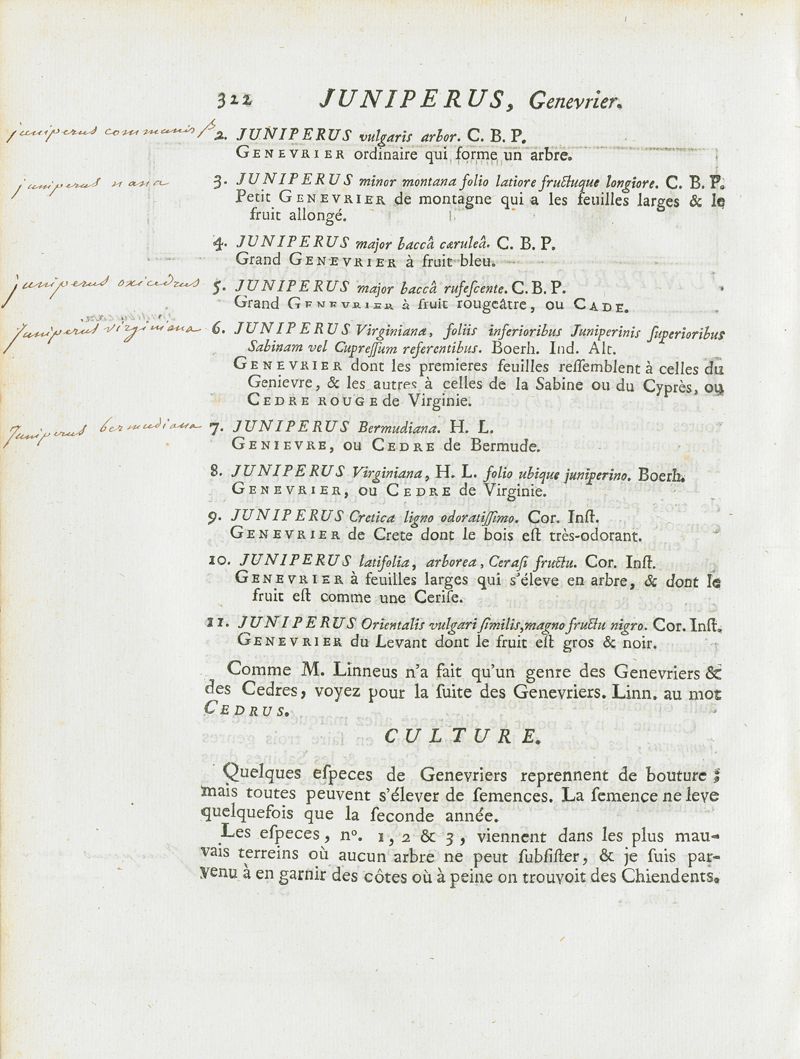 322 JUNIPERUS, Genevrier.
juniperus communis β 2. JUNIPERUS vulgaris arbor. C. B. P.
GENEVRIER ordinaire qui forme un arbre.
juniperus nana 3. JUNIPERUS minor montana folio latiore fructuque longiore. C. B. P.
Petit GENEVRIER de montagne qui a les feuilles larges & le
fruit allongé.
4. JUNIPERUS major baccâ cæruleâ. C. B. P.
Grand GENEVRIER à fruit bleu.
juniperus oxicedrus 5. JUNIPERUS major baccâ rufeſcente. C. B. P.
Grand GENEVRIER à fruit rougeâtre, ou CADE.
Juniperus virginiana 6. JUNIPERUS Virginiana, foliis inferioribus Juniperinis ſuperioribus
Sabinam vel Cupreſſum referentibus. Boerh. Ind. Alt.
GENEVRIER dont les premieres feuilles reſſemblent à celles du
Genievre, & les autres à celles de la Sabine ou du Cyprès, ou
CEDRE ROUGE de Virginie.
Juniperus bermudiana 7. JUNIPERUS Bermudiana. H. L.
GENIEVRE, ou CEDRE de Bermude.
8. JUNIPERUS Virginiana, H. L. folio ubique juniperino. Boerh.
GENEVRIER, ou CEDRE de Virginie.
9. JUNIPERUS Cretica ligno odoratiſſimo. Cor. Inſt.
GENEVRIER de Crete dont le bois eſt très-odorant.
10. JUNIPERUS latifolia, arborea, Ceraſi fructu. Cor. Inſt.
GENEVRIER à feuilles larges qui s'éleve en arbre, & dont le
fruit eſt comme une Ceriſe.
11. JUNIPERUS Orientalis vulgari ſimilis, magno fructu nigro. Cor. Inſt.
GENEVRIER du Levant dont le fruit eſt gros & noir.
Comme M. Linneus n'a fait qu'un genre des Genevriers &
des Cedres, voyez pour la ſuite des Genevriers. Linn. au mot
CEDRUS.
CULTURE.
Quelques eſpeces de Genevriers reprennent de bouture ;
mais toutes peuvent s'élever de ſemences. La ſemence ne leve
quelquefois que la ſeconde année.
Les eſpeces, nº. 1, 2 & 3, viennent dans les plus mau-
vais terreins où aucun arbre ne peut ſubſiſter, & je ſuis par-
venu à en garnir des côtes où à peine on trouvoit des Chiendents.